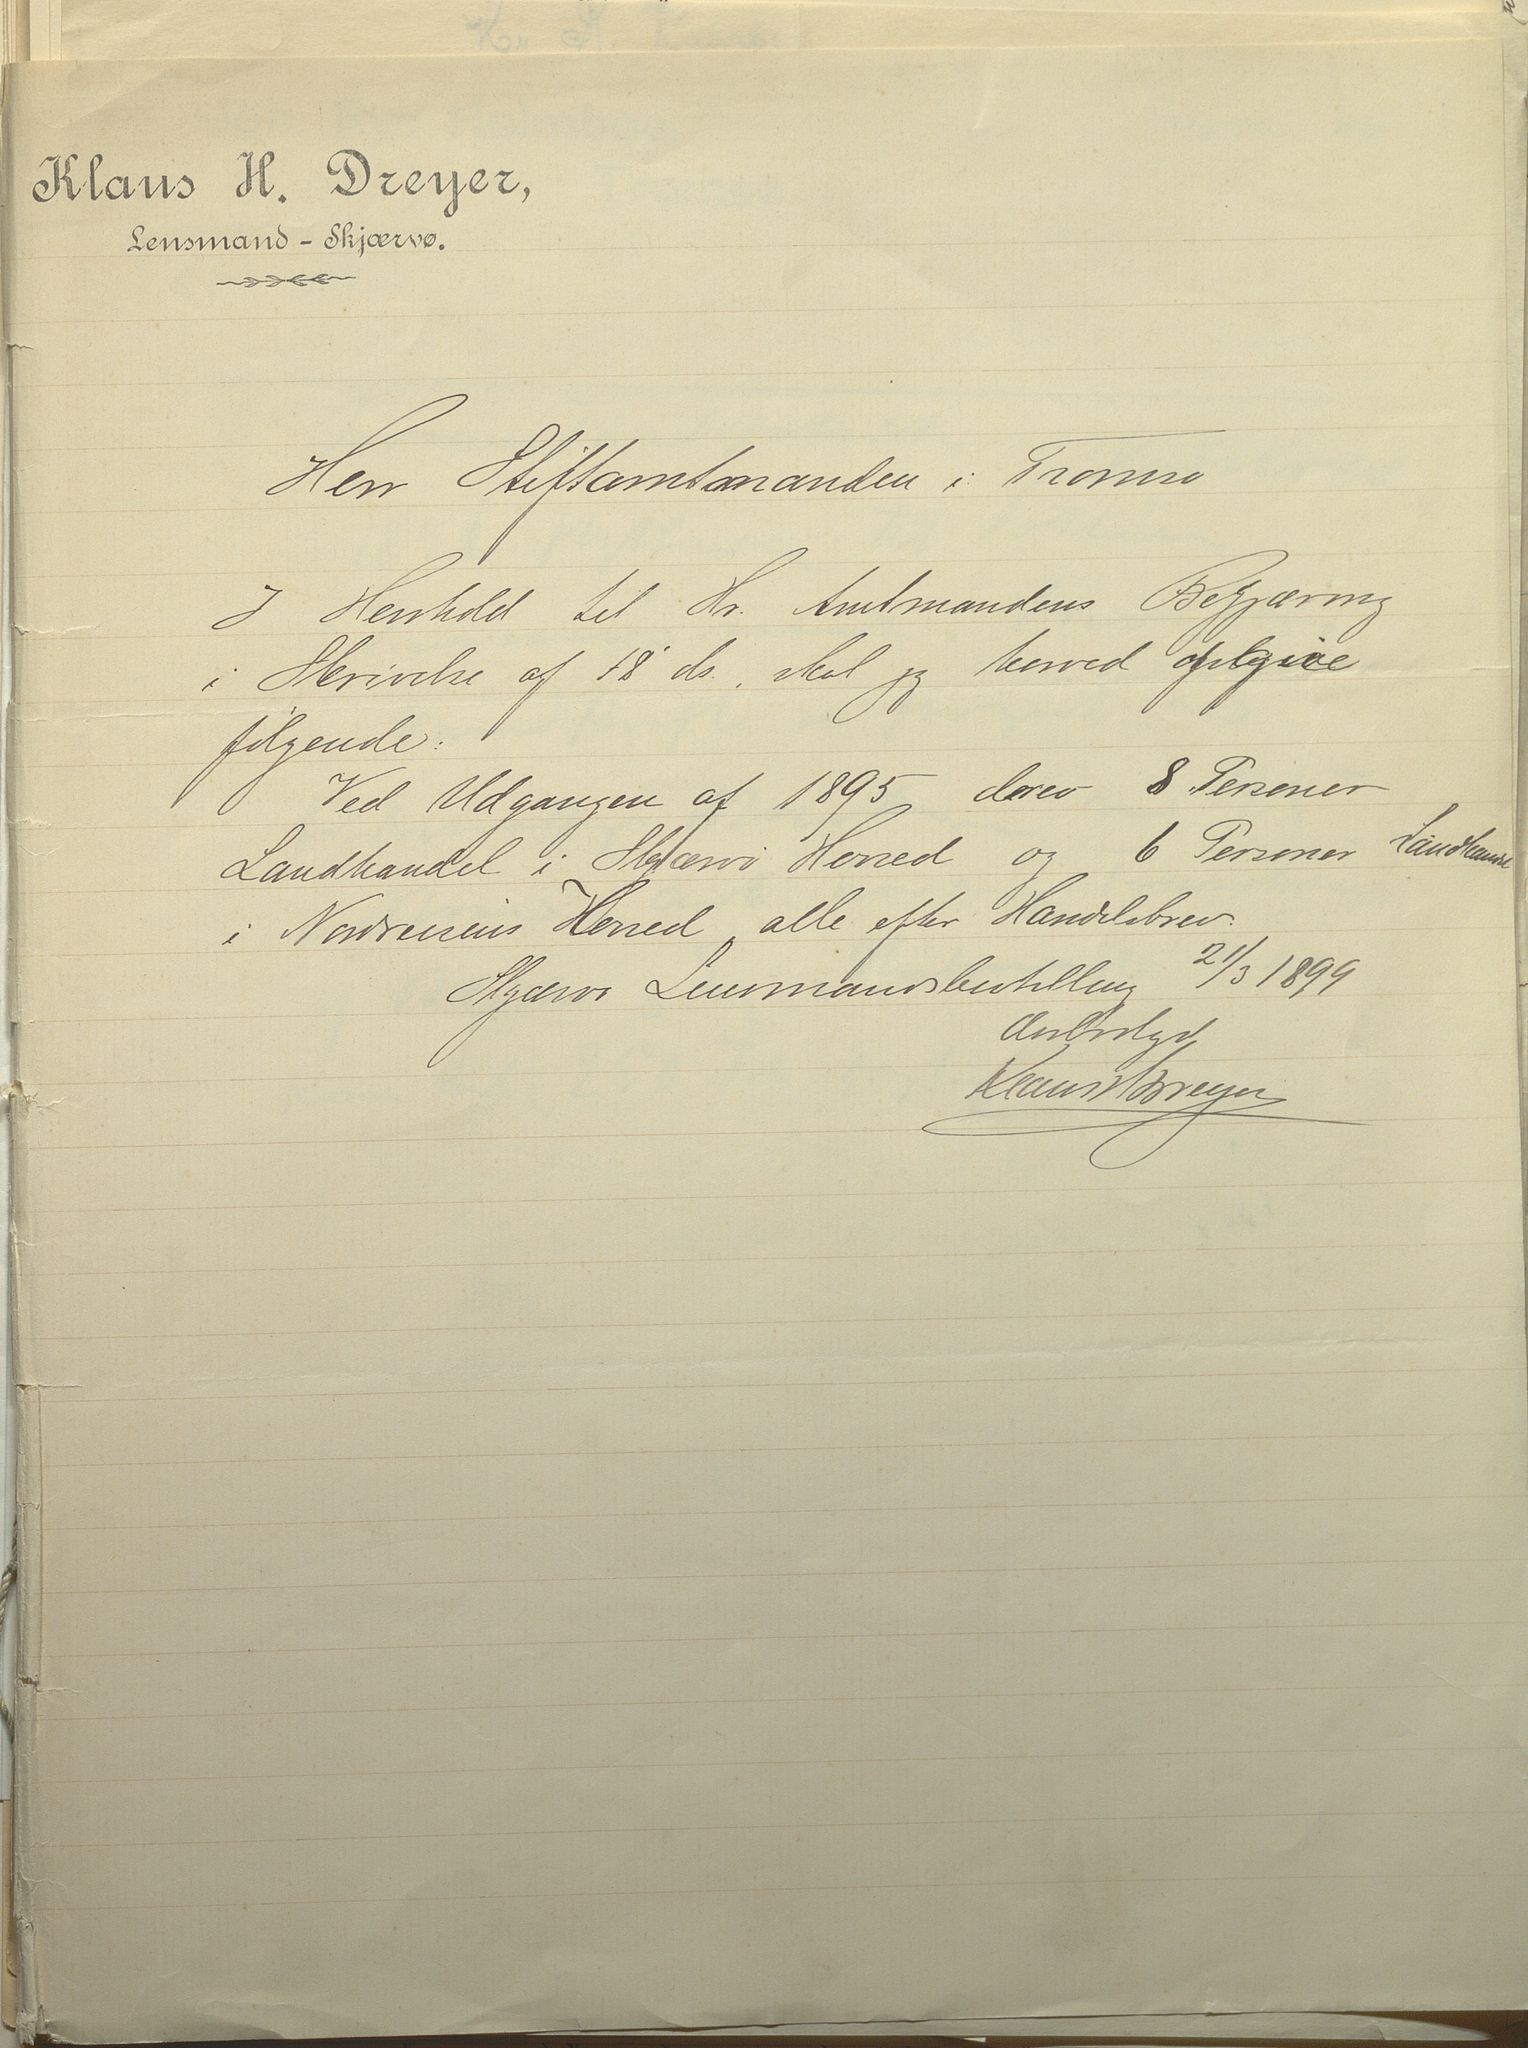 Klaus H. Dreyer,
Lensmand - Skjærvø.
Herr Stiftamtmanden i Tromsø
I Henhold til Hr. Amtmandens Begjæring
i Skrivelse af 18 ds., skal jeg herved opgive
følgende:
Ved Udgangen af 1895 drev 8 Personer
Landhandel i Skjærvø Herred og 6 Personer Landhandel
i Nordreisens Herred, alle efter Handelsbrev.
Skjærvø Lensmandsbestilling 21/3 1899
Ærbødigst
Klaus H Dreyer